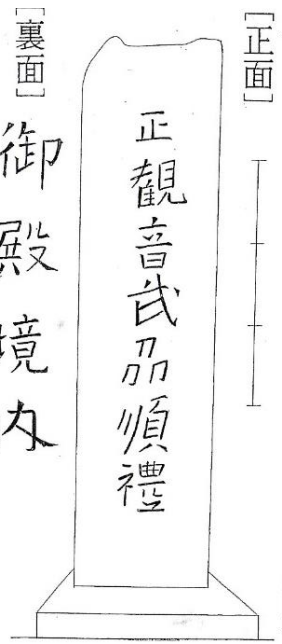 ［正面］
正観音武刕順禮
［裏面］
御殿境内